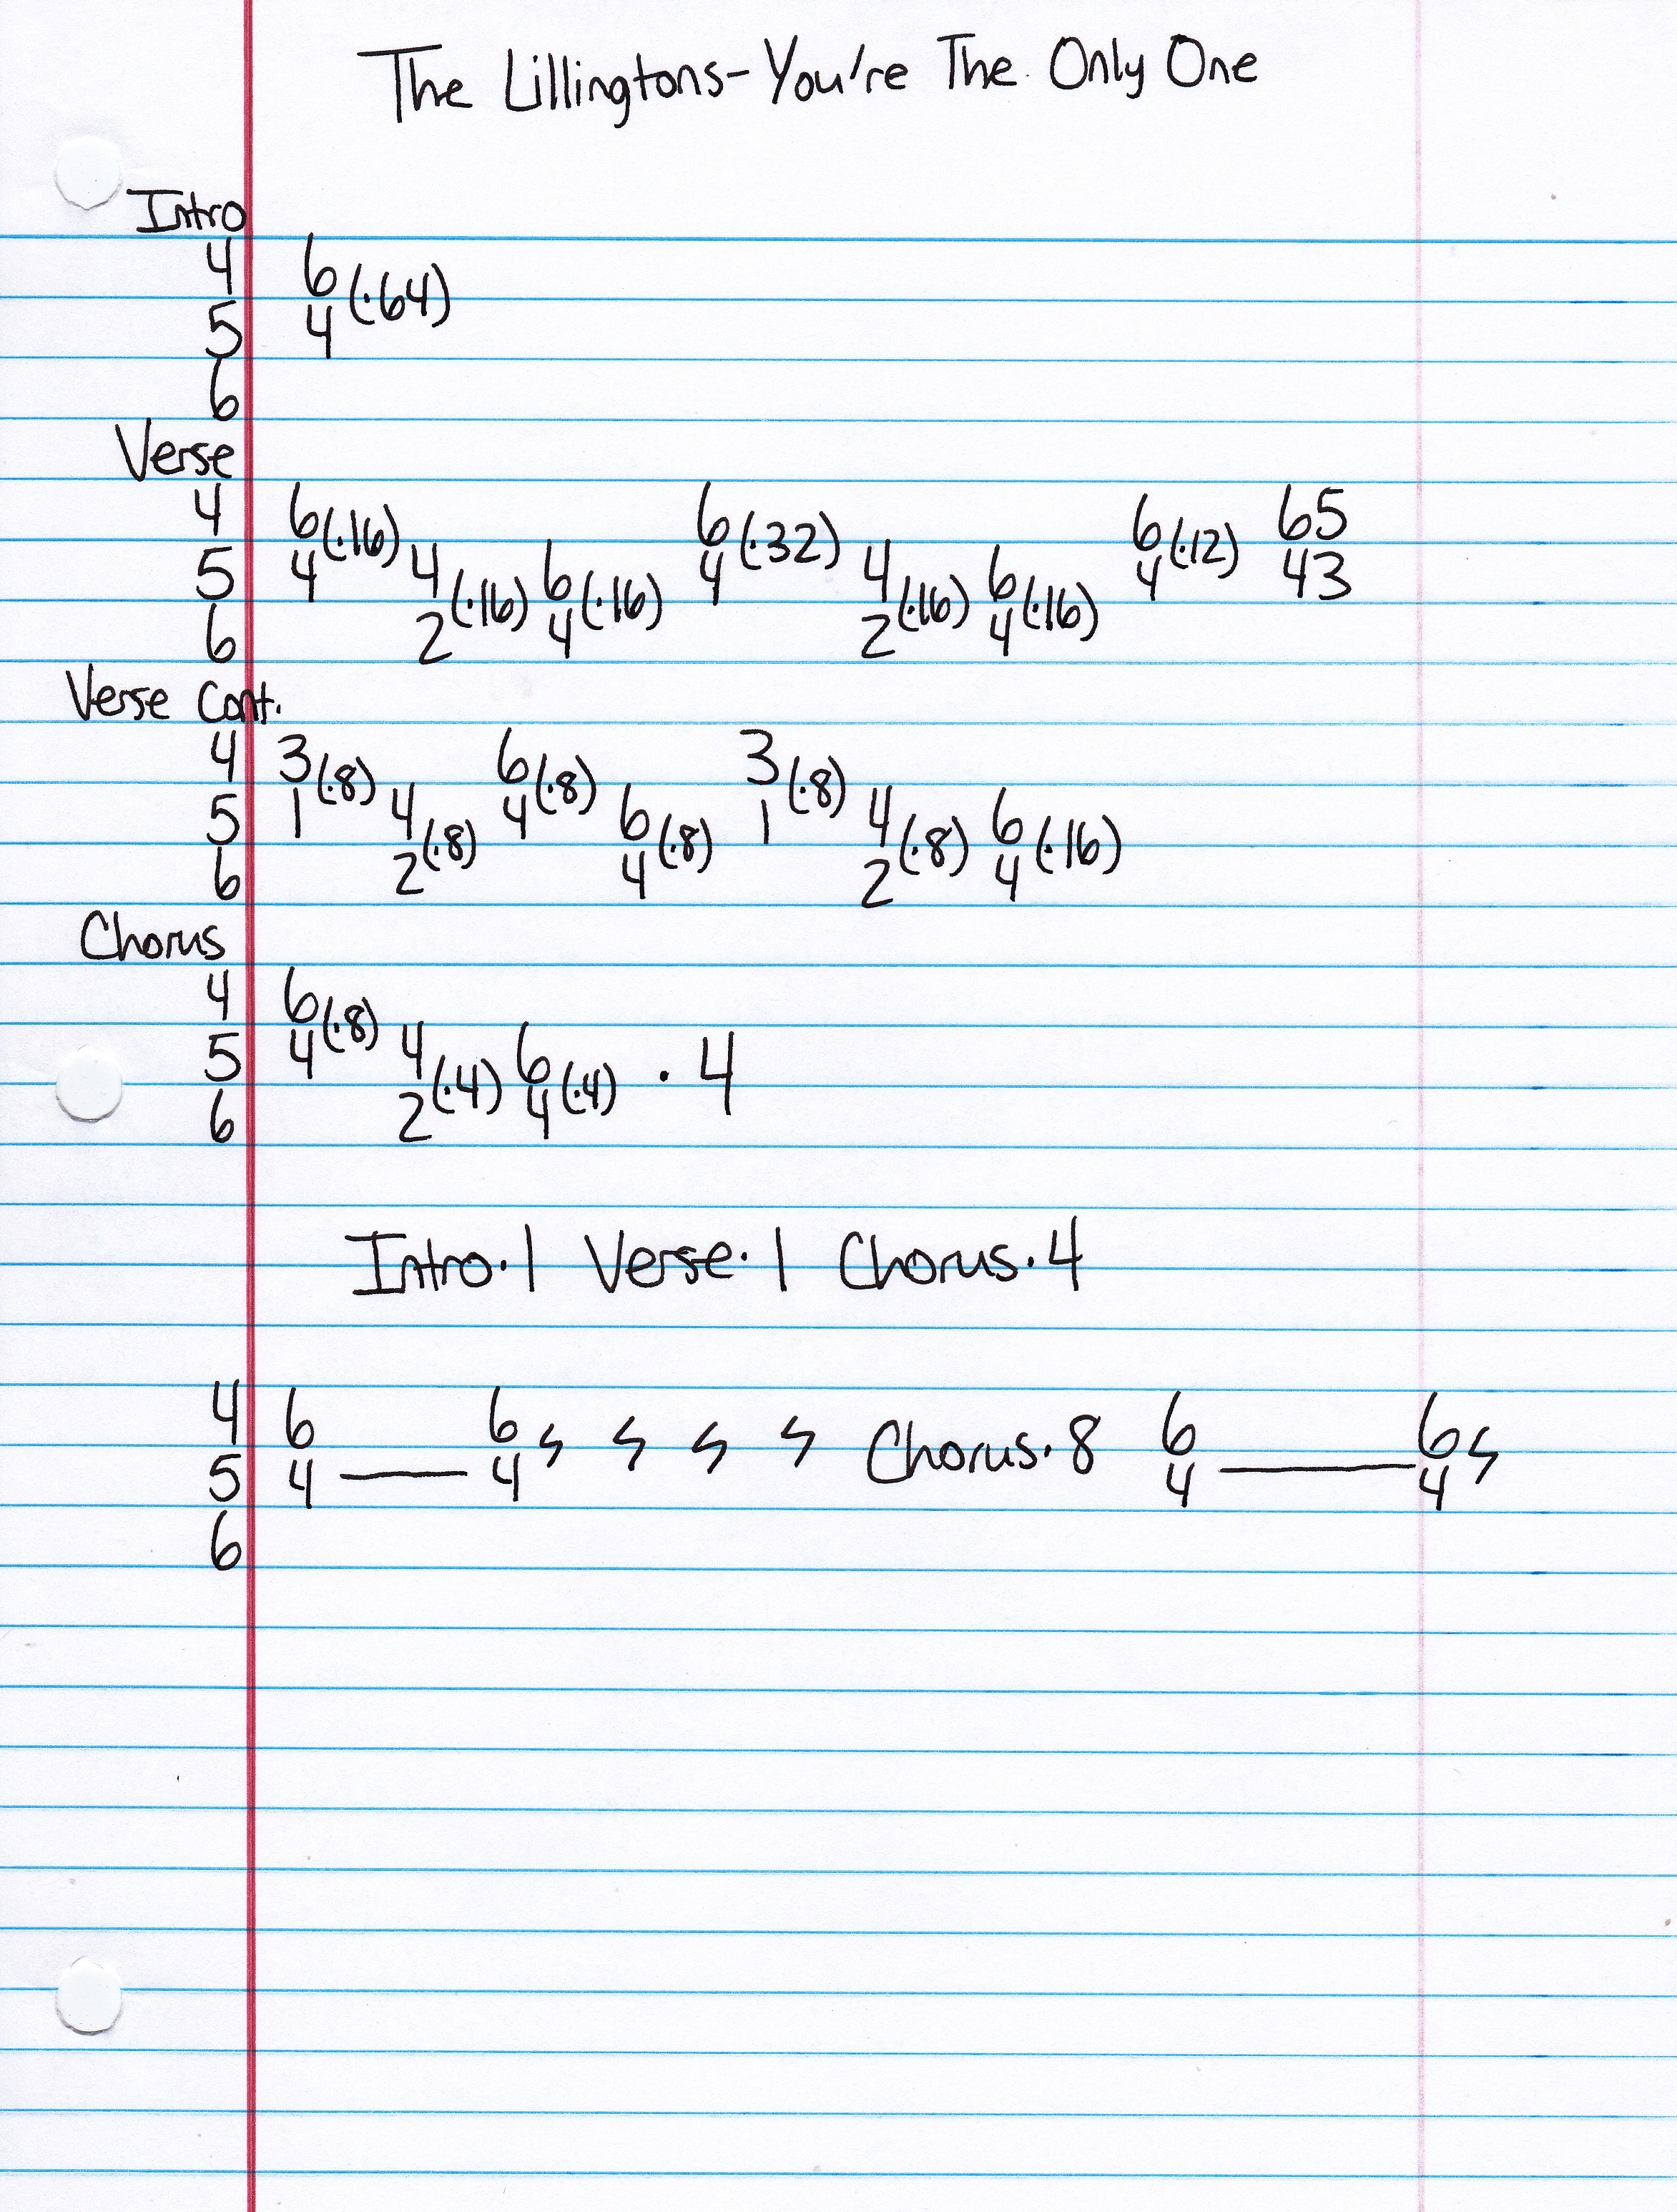 The Lillingtons-You're The Only One
Intro
4 6
5 4 (·64)
6
Verse
4 6 6 6 65
5 4 (·16) 4 6 4 (·32) 4 6 4 (·12) 43
6 2 (·16) 4 (·16) 2 (·16) 4 (·16)
Verse Cont.
4 3 6 3
5 1 (·8) 4 4 (·8) 6 1 (·8) 4 6
6 2 (·8) 4 (·8) 2 (·8) 4 (·16)
Chorus
4 6
5 4 (·8) 4 6 · 4
6 2 (·4) 4 (·4)
Intro·1 Verse·1 Chorus·4
4 6 6 Chorus·8 6 6
5 4 — 4 4 — 4
6